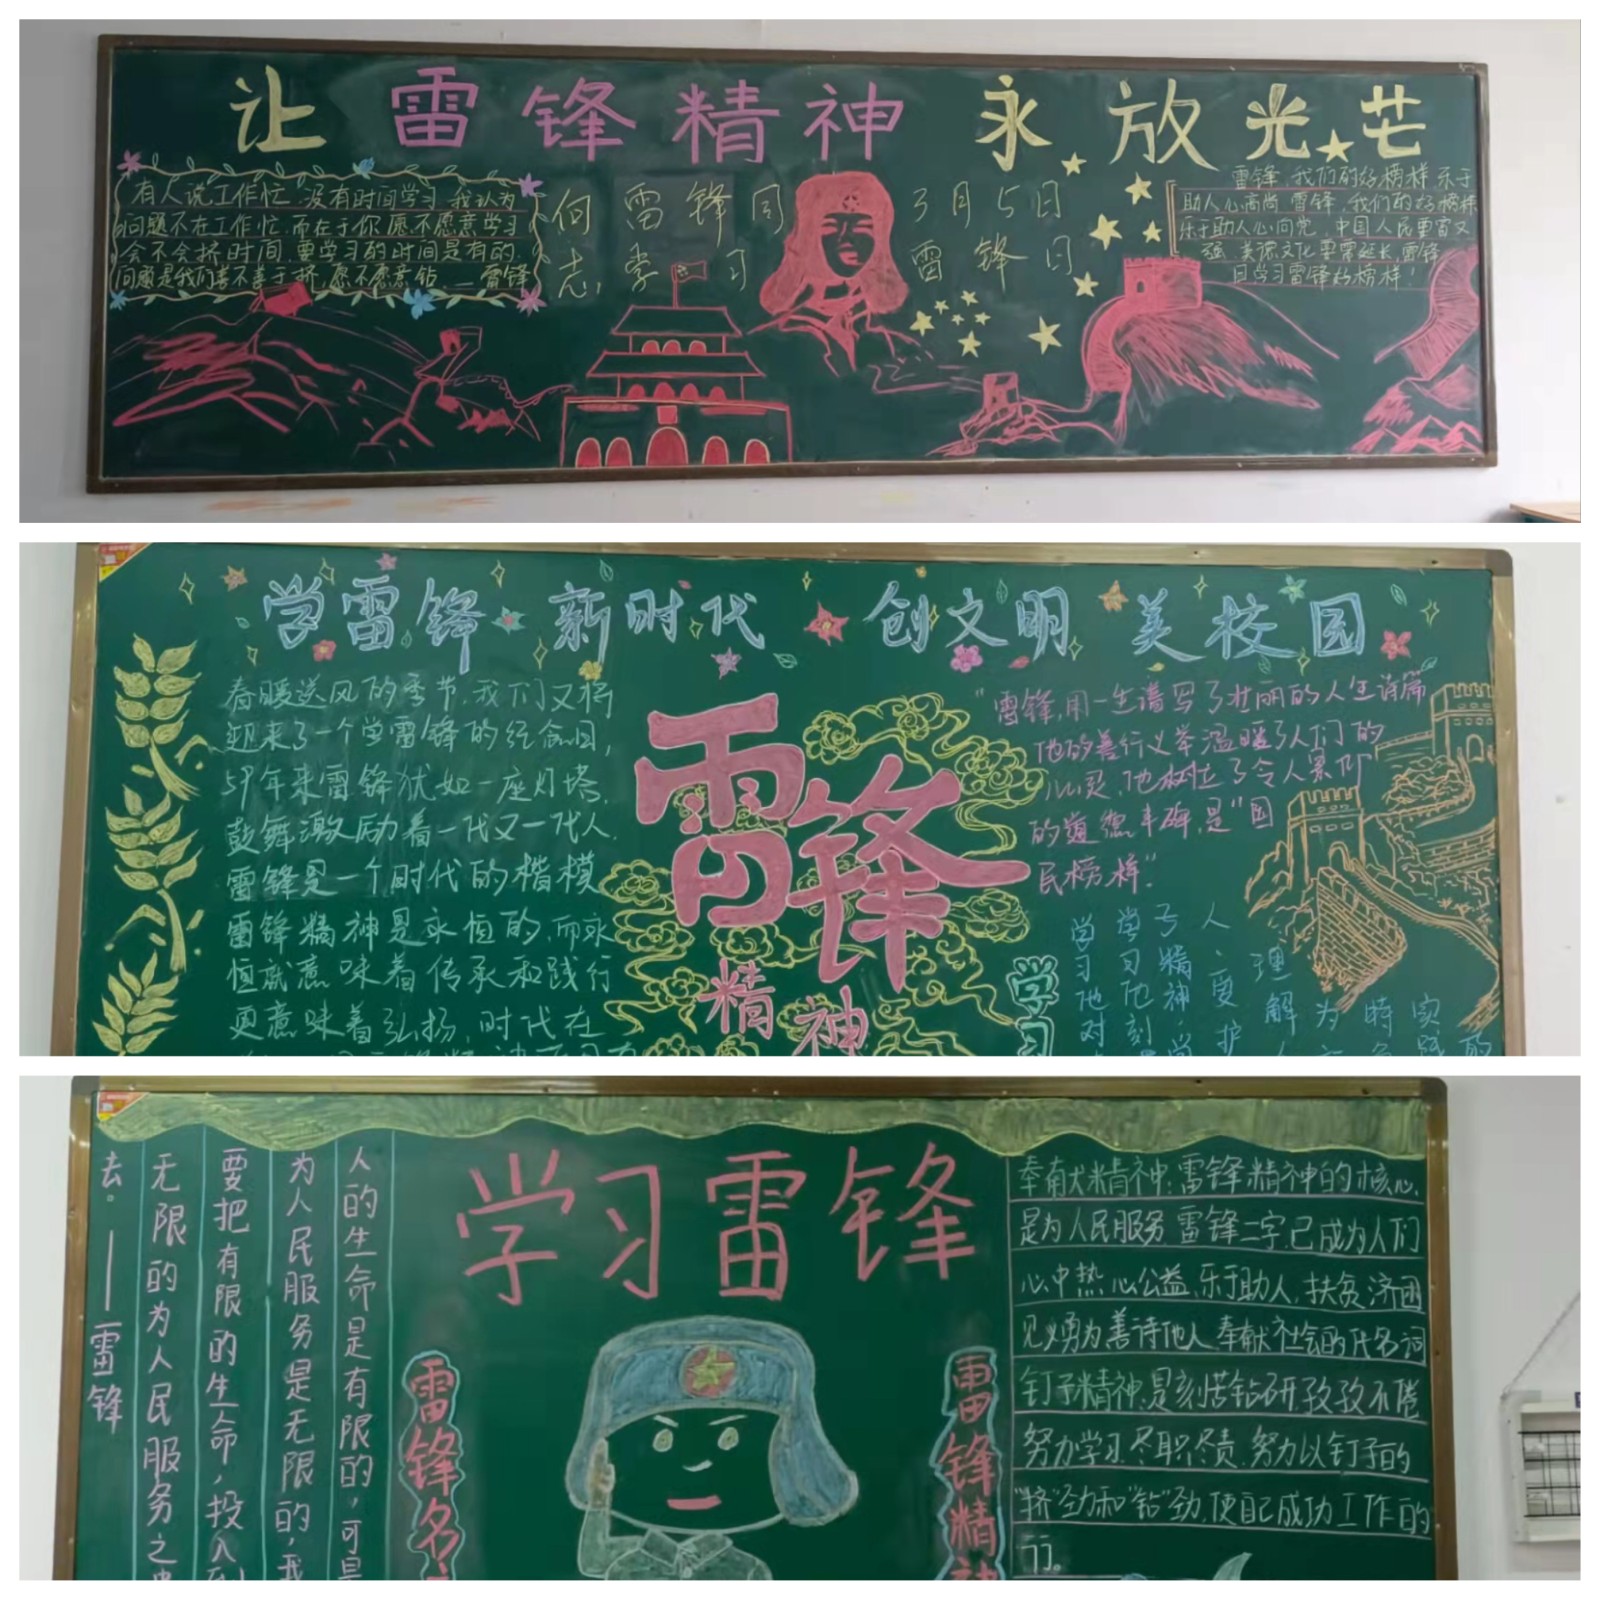 让雷锋精神永放光芒
有人说工作忙、没有时间学习,我认为
问题不在工作忙,而在于你愿不愿意学习
会不会挤时间,要学习的时间是有的,
问题是我们善不善于挤,愿不愿意钻。——雷锋
向雷锋同
志学习
3月5日
雷锋日
雷锋,我们的好榜样,乐于
助人心高尚,雷锋,我们的好榜样
乐于助人心向党,中国人民更富又
强,美德文化要常延长,雷锋
日学习雷锋好榜样!
学雷锋 新时代 创文明 美校园
春暖送风的季节,我们又将
迎来了一个学雷锋的纪念日,
59年来雷锋犹如一座灯塔,
鼓舞激励着一代又一代人.
雷锋是一个时代的楷模
雷锋精神是永恒的,而永
恒就意味着传承和践行
更意味着弘扬,时代在
雷锋
精神
"雷锋,用一生谱写了壮丽的人生诗篇
他的善行义举温暖了人们的
心灵,他树立了令人累仰
的道德丰碑,是"国
民榜样"
学习
学习他对
学习他刻
学习雷锋
人的生命是有限的,可是
为人民服务是无限的,我
要把有限的生命,投入到
无限的为人民服务之中
去。——雷锋
雷锋名
雷锋精神
奉献精神:雷锋精神的核心,
是为人民服务 雷锋二字,已成为人们
心中热心公益,乐于助人,扶贫济困
见义勇为善待他人,奉献社会的代名词
钉子精神:是刻苦钻研孜孜不倦
努力学习,尽职尽责,努力以钉子的
"挤"劲和"钻"劲,使自己成功工作的
行。